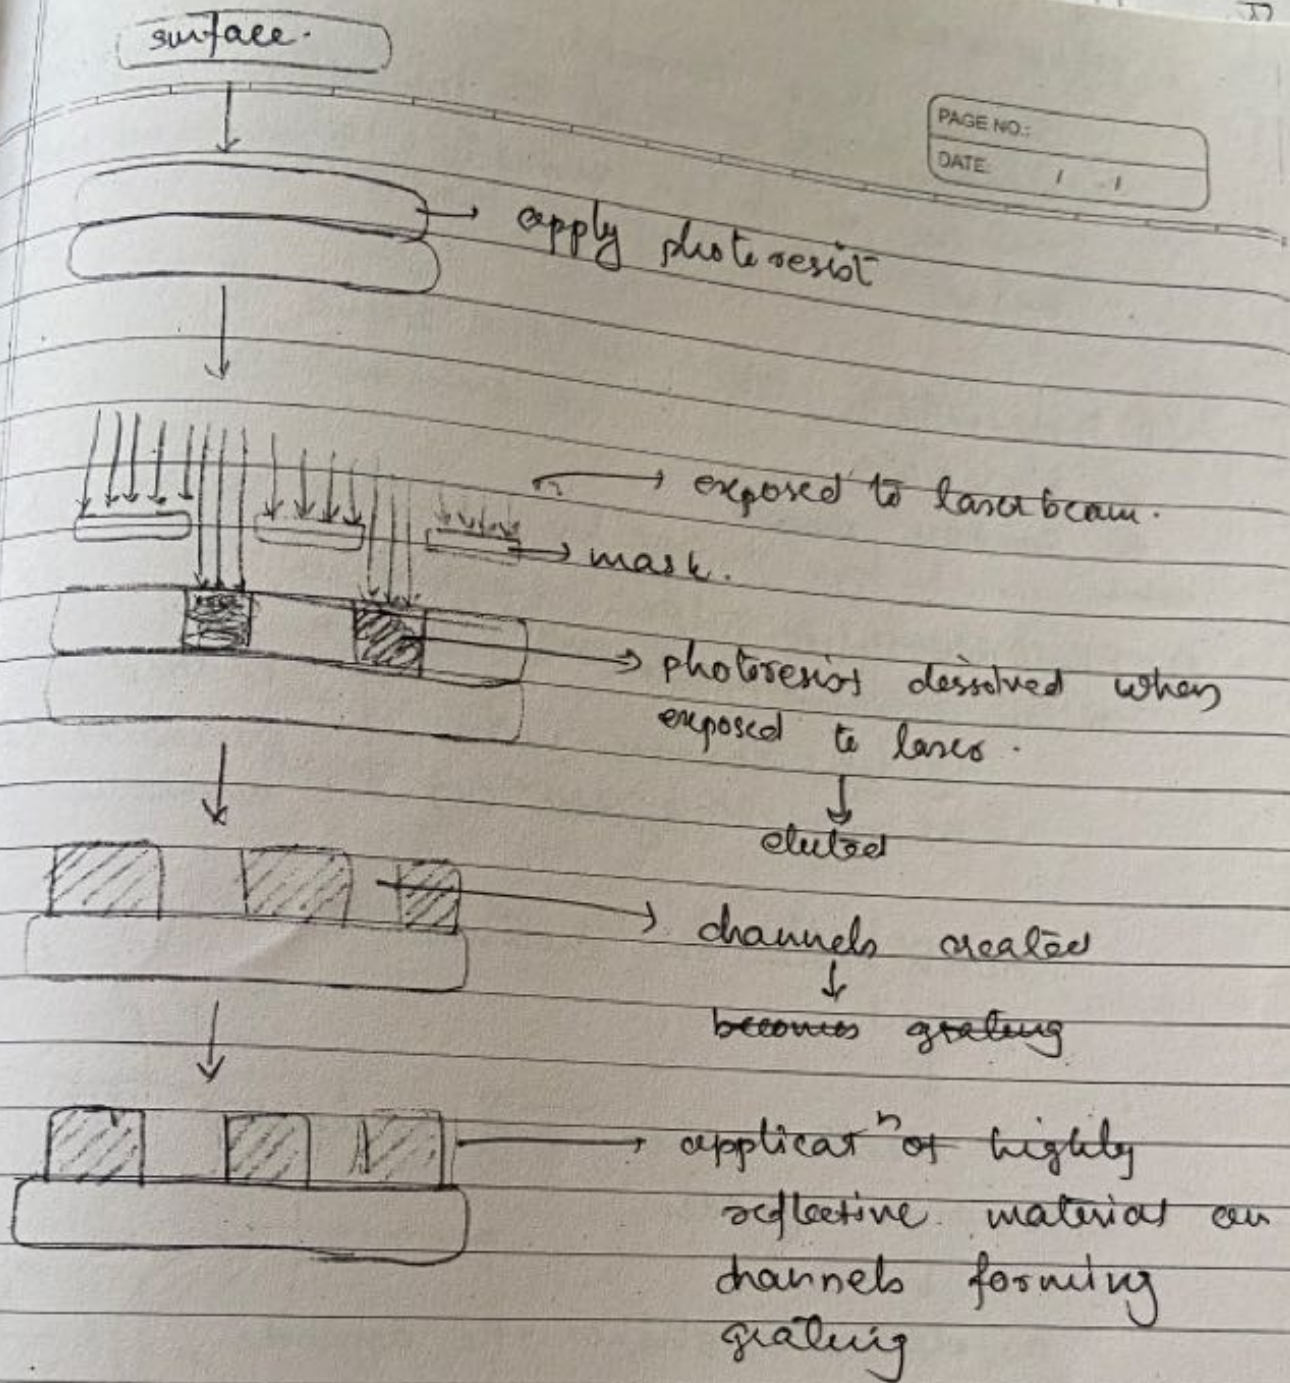 surface.
PAGE NO.:
DATE: / /
apply photoresist
exposed to laser beam.
mask.
photoresist dissolved when
exposed to laser.
eluted
channels created
becomes grating
applicatⁿ of highly
reflective material on
channels forming
grating